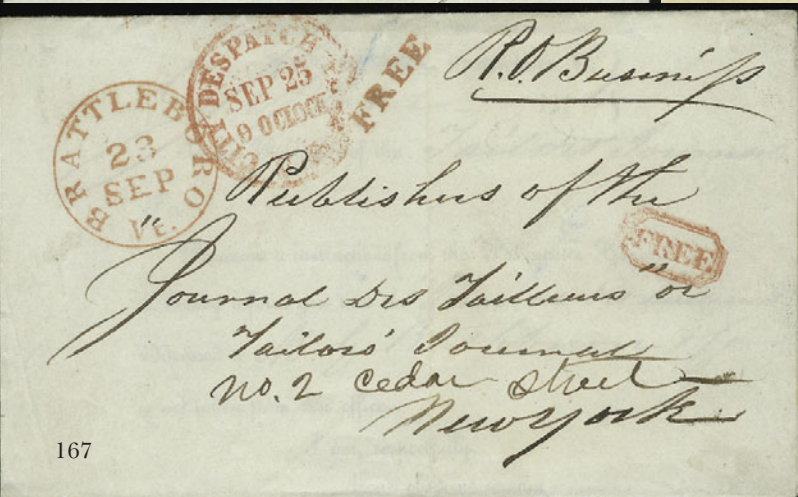 BRATTLEBORO Vt.
23
SEP
CITY DESPATCH
SEP 25
9 OCLOCK
FREE
P.O. Business
Publishers of the
FREE
"Journal Des Tailleurs" or
Tailors' Journal
No. 2 Cedar Street
New York
167